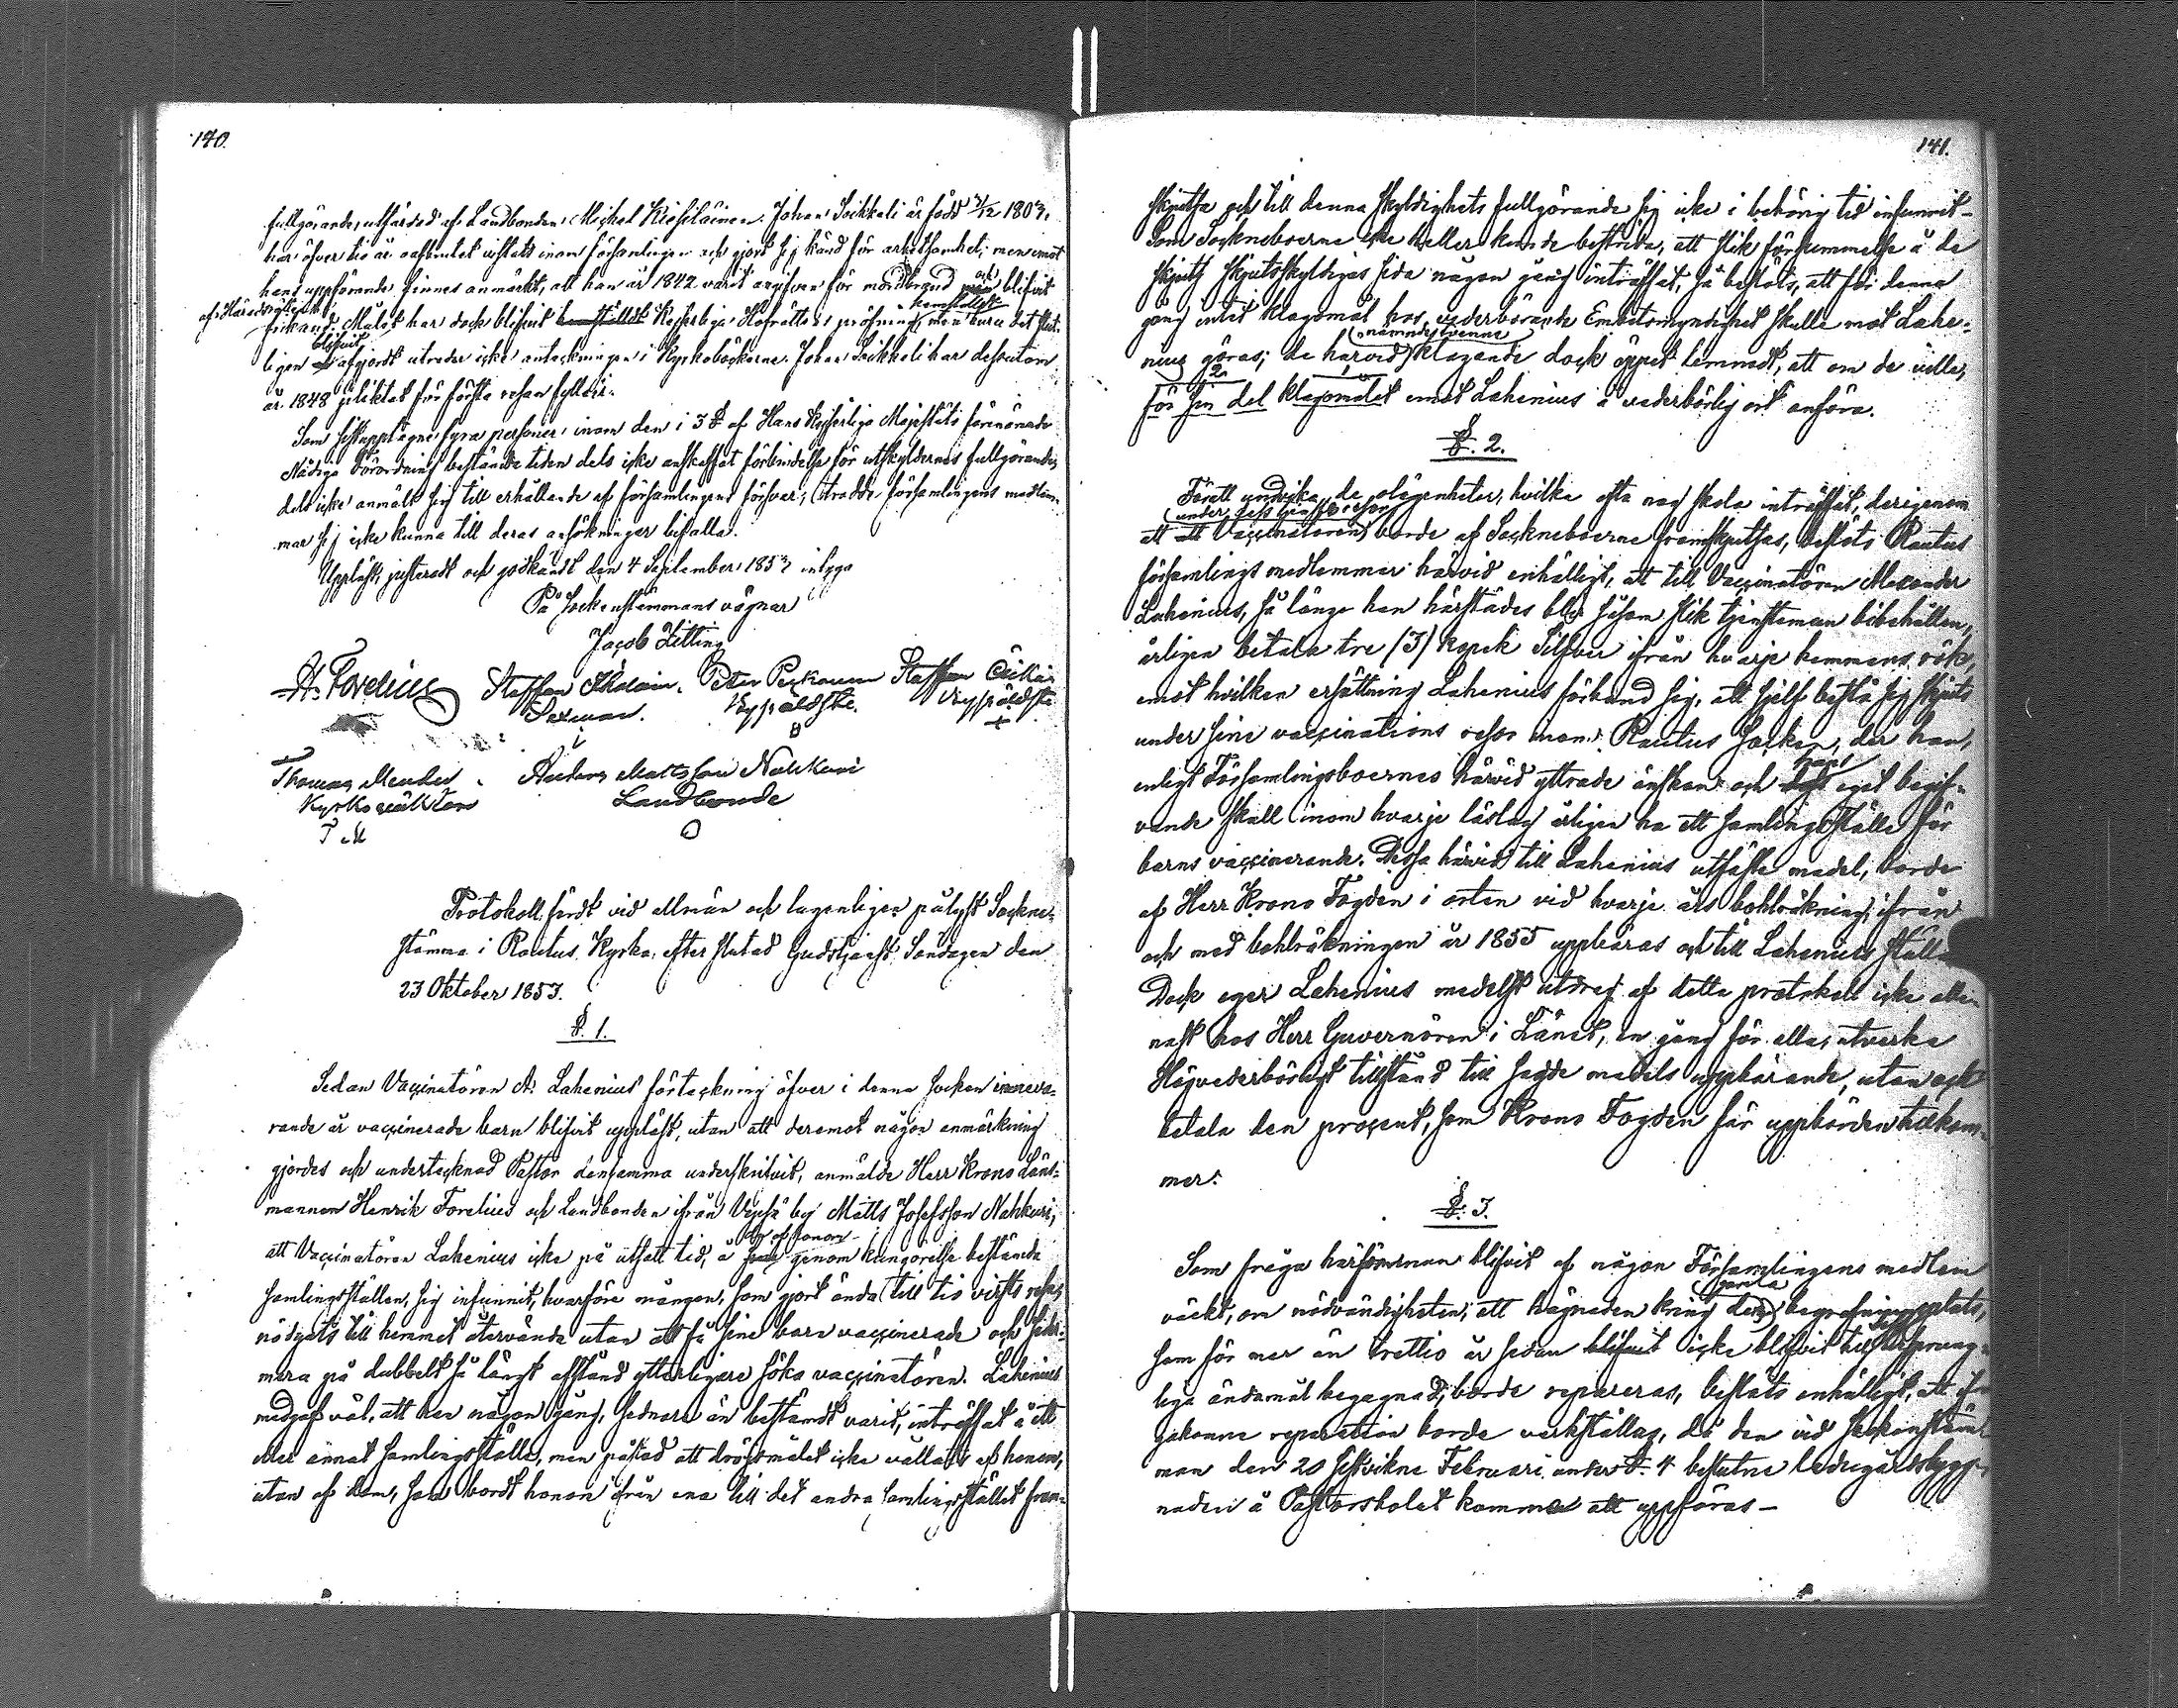 140.
fullgörande, utfärdad af Landbonden Michel Kiesiläinen. Johan Soikkeli är född 3/12 1803,
har öfver tio år oafbrutet vistats inom församlingen och gjort sig känd för arbetsamhet; men emot
hans uppförande finnes anmärkt, att han år 1842 varit angifven för mordbrand och blifvit
af Häradsrätten
frikänd. Målet har dock blifvit hemställdt Kejserliga Hofrättens pröfning, men huru det slut-
hemställdt
blifvit
ligen afgjordt utreder icke anteckningen i Kyrkoböckerne. Johan Soikkeli har dessutom
år 1848 pliktat för första resan fylleri.
Som sistupptagne fyra personer inom den i 3 § af Hans Kejserliga Majestäts förenämnde
Nådiga Förordning bestämda tiden dels icke anskaffat förbindelse för utskyldernes fullgörande,
dels icke anmält sig till erhållande af församlingens försvar; trodde församlingens medlem-
mar sig icke kunna till deras ansökningar bifalla.
Uppläst, justeradt och godkändt den 4 September 1853 intyga
På Sockenstämmans vägnar
Jacob Zitting
H: Forelius Staffan Ikoläin. Peter Peckanen Staffan
Sexman. Byjåldste. Byjåldste
+
Thomas Meuder Anders Mattsson Nahkuri
Kyrkoväktare Landbonde
T M
Protokoll, fördt vid allmän och lagenligen pålyst Sockne-
stämma i Rautus Kyrka, efter slutad Gudstjenst Söndagen den
23 Oktober 1853.
§ 1.
Sedan Vaccinatören A: Lahenius' förteckning öfver i denna socken inneva-
rande år vaccinerade barn blifvit uppläst, utan att deremot någon anmärkning
gjordes och undertecknad Pastor densamma underskrifvit, anmälde Herr Krono Läns-
mannen Henrik Forelius och Landbonden ifrån by Matts Josefsson Nahkuri,
att Vaccinatören Lahenius icke på utsatt tid, å genom kungörelse bestämda
af honom
samlingsställen, sig infunnit, hvarföre mången, som gjort ända till tio virsts resa,
nödgats till hemmet återvända utan att få sine barn vaccinerade och sedi-
mera på dubbelt så långt afstånd ytterligare söka vaccinatören. Lahenius
medgaf väl, att han någon gång, sednare än bestämdt varit, inträffat å ett
eller annat samlingsställe, men påstod att dröjsmålet icke vållats af honom,
utan af dem, som bordt honom ifrån ena till det andra samlingsstället fram-
141.
skjutsa och till denna skyldighets fullgörande sig icke i behörig tid infunnit_
Som Sockneboerne icke heller kunde bestrida, att slik försummelse å de
skjuts skjutsskyldigas sida någon gång inträffat, så beslöts, att för denna
gång intet klagomål hos vederbörande Embetsmyndighet skulle mot Lahe-
nämnde tvenne
nius göras; de härvid klagande dock öppet lemnadt, att om de ville,
2 1
för sin del klagomålet emot Lahenius å vederbörlig ort anföra.
§. 2.
Föratt undvika de olägenheter, hvilka ofta nog skola inträffat, derigenom
under dess tjensteresor
att att Vaccinatören borde af Sockneboerne framskjutsas, beslöts Rautus
församlings medlemmar härvid enhälligt, att till Vaccinatören Alexander
Lahenius, så länge han härstädes blir såsom slik tjensteman bibehållen,
årligen betala tre (3) kopek Silfver ifrån hvarje hemmans rök,
emot hvilken ersättning Lahenius förband sig, att sjelf bestå sig skjuts
under sine vaccinations resor inom Rautus socken, der han,
hans
enligt Församlingsboernes härvid yttrade önskan och eget begif-
vande skall inom hvarje läslag årligen ha ett samlingsställe för
barns vaccinerande. Dessa härvid till Lahenius utfäste medel, borde
af Herr Krono Fogden i orten vid hvarje års bohlräkning, ifrån
och med bohlräkningen år 1855 uppbäras och till Lahenius ställa
Dock eger Lahenius medelst utdrag af detta protokoll icke alle-
nast hos Herr Guvernören i Länet, en gång för alla, utverka
Högvederbörligt tillstånd till sagde medels uppbärande, utan ock
betala den procent, som Krono Fogden för uppbörden tillkom-
mer.
§. 3.
Som fråga härförinnan blifvit af någon Församlingens medlem
gamla
väckt, om nödvändigheten, att hägnaden kring den begrafningsplats,
som för mer än trettio år sedan blifvit icke blifvit till ursprung-
liga ändamål begagnad, borde repareras, beslöts enhälligt, att if-
gakomne reparation borde verkställas, då den vid sockenstäm-
man den 20 sistvikne Februari under §. 4 beslutne ladugårdsbygg-
naden å Pastorsbolet komma att uppföras_